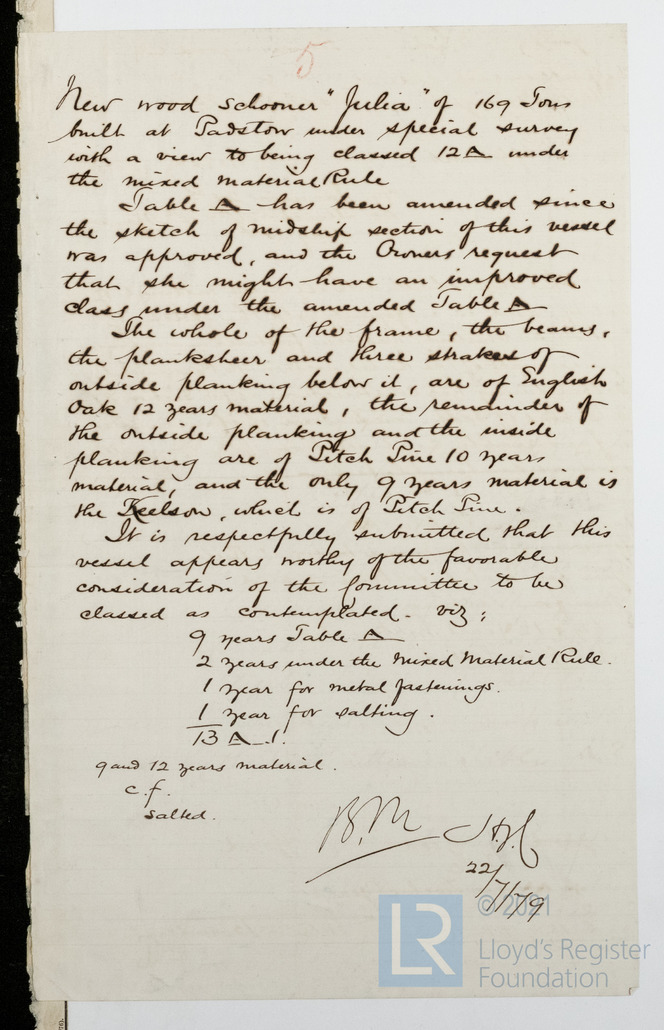 5
New wood schooner "Julia" of 169 Tons
built at Padstow under special survey
with a view to being classed 12A under
the mixed material Rule
Table A has been amended since
the sketch of midship section of this vessel
was approved, and the Owners request
that she might have an improved
class under the amended Table A
The whole of the frame, the beams,
the planksheer and three strakes of
outside planking below it, are of English
Oak 12 years material, the remainder of
the outside planking and the inside
planking are of Pitch Pine 10 years
material, and the only 9 years material is
the Keelson, which is of Pitch Pine.
It is respectfully submitted that this
vessel appears worthy of the favorable
consideration of the Committee to be
classed as contemplated. viz;
9 years Table A
2 years under the Mixed Material Rule.
1 year for metal fastenings.
1 year for salting.
13 A.1.
9 and 12 years material.
c.f.
salted.
B.M
22/7/79
© 2021
LR
Lloyd's Register
Foundation